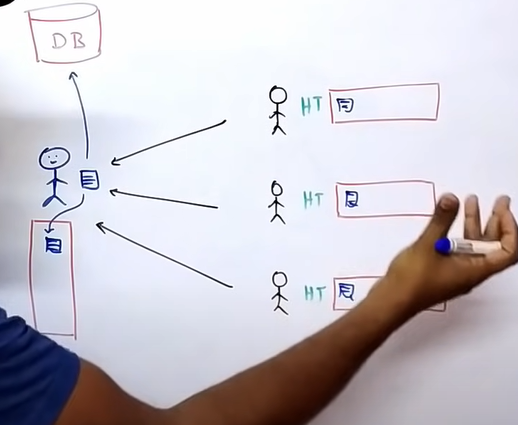 DB
HT
HT
HT